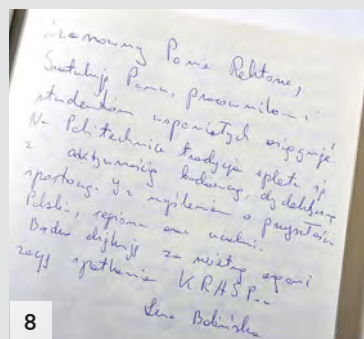 Szanowny Panie Rektorze,
Gratuluję Panu, pracownikom i
studentom wspaniałych osiągnięć.
Na Politechnice tradycja splata się
z aktywnością badawczą, dydaktyczną
sportową i z myśleniem o przyszłości
Polski, regionu oraz uczelni.
Bardzo dziękuję za
spotkania KRASP...
8